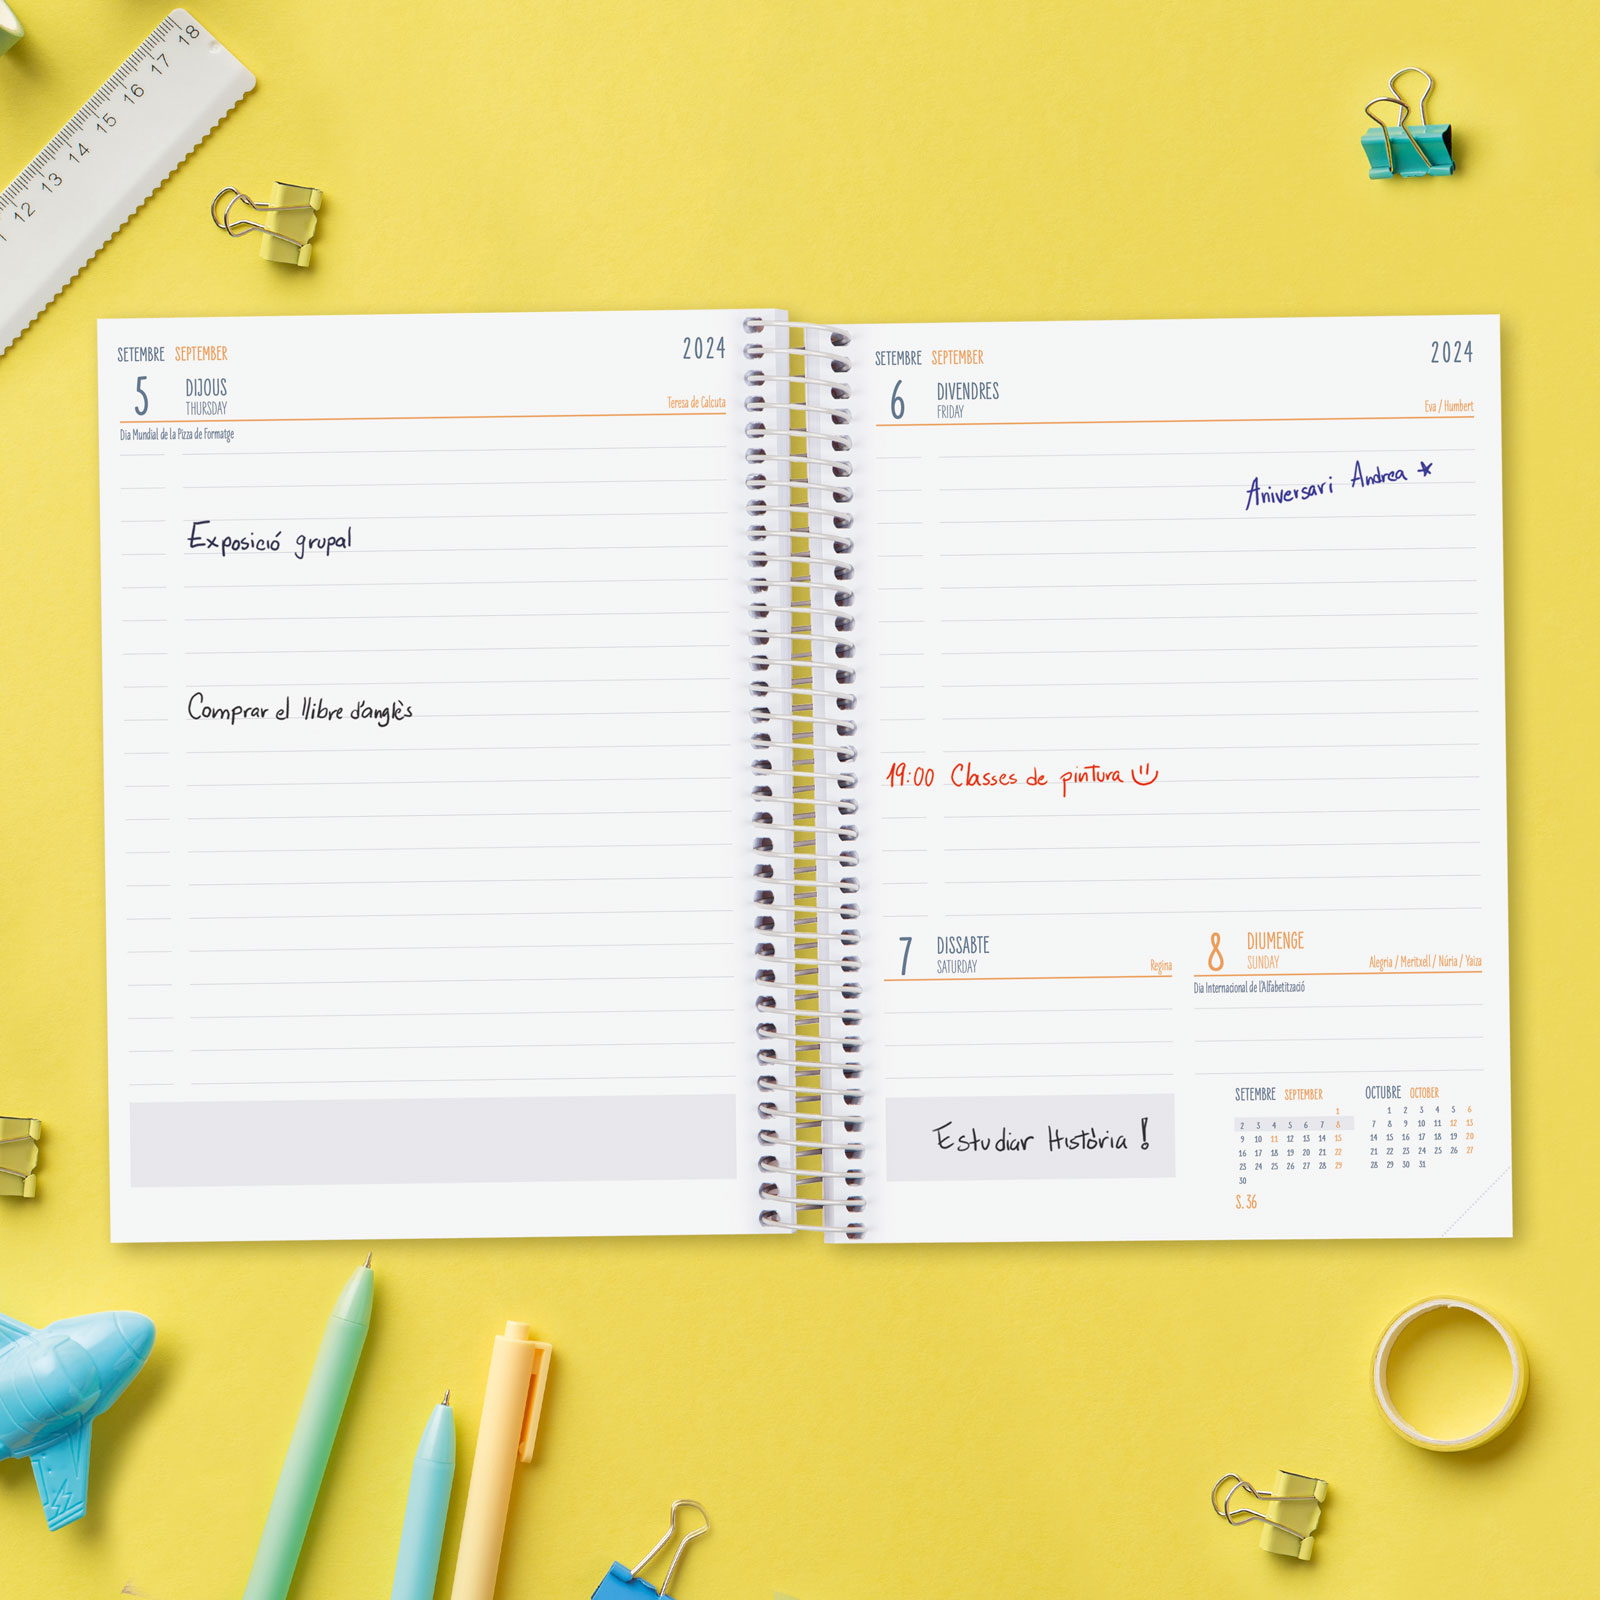 18
17
16
15
14
13
12
SETEMBRE SEPTEMBER 2024
5 DIJOUS
THURSDAY
Teresa de Calcuta
Dia Mundial de la Pizza de Formatge
Exposició grupal
Comprar el llibre d'anglès
SETEMBRE SEPTEMBER 2024
6 DIVENDRES
FRIDAY
Eva / Humbert
Aniversari Andrea
19:00 Classes de pintura
7 DISSABTE
SATURDAY
Regina
Estudiar Història !
8 DIUMENGE
SUNDAY
Alegria / Meritxell / Núria / Yaiza
Dia Internacional de l'Alfabetització
SETEMBRE SEPTEMBER
1
2 3 4 5 6 7 8
9 10 11 12 13 14 15
16 17 18 19 20 21 22
23 24 25 26 27 28 29
30
S. 36
OCTUBRE OCTOBER
1 2 3 4 5 6
7 8 9 10 11 12 13
14 15 16 17 18 19 20
21 22 23 24 25 26 27
28 29 30 31